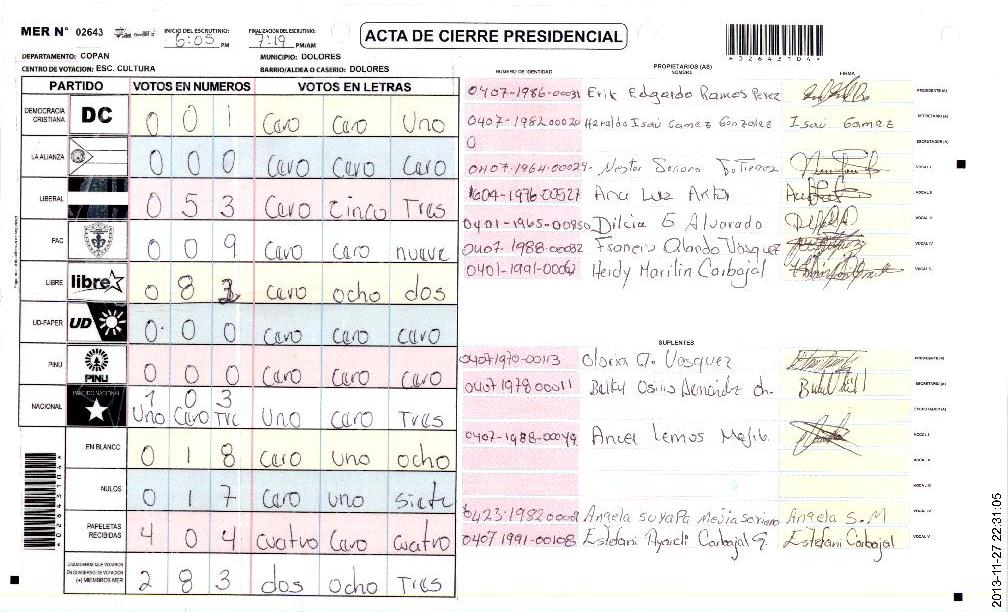 MER N° 02643 INICIO DEL ESCRUTINIO: 6:05 PM FINALIZACION DEL ESCRUTINIO: 7:19 PM/AM
ACTA DE CIERRE PRESIDENCIAL
*02643104*
DEPARTAMENTO: COPAN MUNICIPIO: DOLORES
CENTRO DE VOTACION: ESC. CULTURA BARRIO/ALDEA O CASERIO: DOLORES
PARTIDO VOTOS EN NUMEROS VOTOS EN LETRAS
DEMOCRACIA CRISTIANA DC 0 0 1 Caro Caro Uno
LA ALIANZA 0 0 0 Caro Caro Caro
LIBERAL 0 5 3 Caro Cinco Tres
PAC 0 0 9 Caro Caro nueve
LIBRE libre 0 8 caro ocho dos
UD-FAPER UD 0 0 0 Caro Caro Caro
PINU PINU 0 0 0 Caro Caro Caro
NACIONAL PARTIDO NACIONAL 1 0 3
Uno Caro Tre Uno Caro Tres
EN BLANCO 0 1 8 Caro uno ocho
NULOS 0 1 7 Caro uno siete
PAPELETAS RECIBIDAS 4 0 4 cuatro Caro Cuatro
CIUDADANOS QUE VOTARON EN CUADERNO DE VOTACION (+) MIEMBROS MER 2 8 3 dos ocho Tres
*02643104*
PROPIETARIOS (AS)
NUMERO DE IDENTIDAD NOMBRE FIRMA
0407-1986-00031 Erik Edgardo Ramos Perez PRESIDENTE (A)
0407-1982 00020 Heraldo Isaí Gamez Gonzalez Isaí Gamez SECRETARIO (A)
0 ESCRUTADOR (A)
0407-1964-00029 Nestor Soriano VOCAL I
1604-1976-00527 Ana Luz VOCAL II
0401-1965-00950 Dilcia E Alvarado VOCAL III
0407-1988-00082 Francis Olando Vasquez VOCAL IV
0401-1991-0006 Heidy Marilin Carbajal VOCAL V
SUPLENTES
0407 1970-00113 Gloria A. Vasquez PRESIDENTE (A)
0407 1978 00011 Belky SECRETARIO (A)
ESCRUTADOR (A)
0407-1988-00049 Lemos VOCAL I
VOCAL II
VOCAL III
0423-1982 Angela suyapa Mejia soriano Angela S.M VOCAL IV
0407 1991-00108 Estefani Carbajal G. Estefani Carbajal VOCAL V
2013-11-27 22:31:05